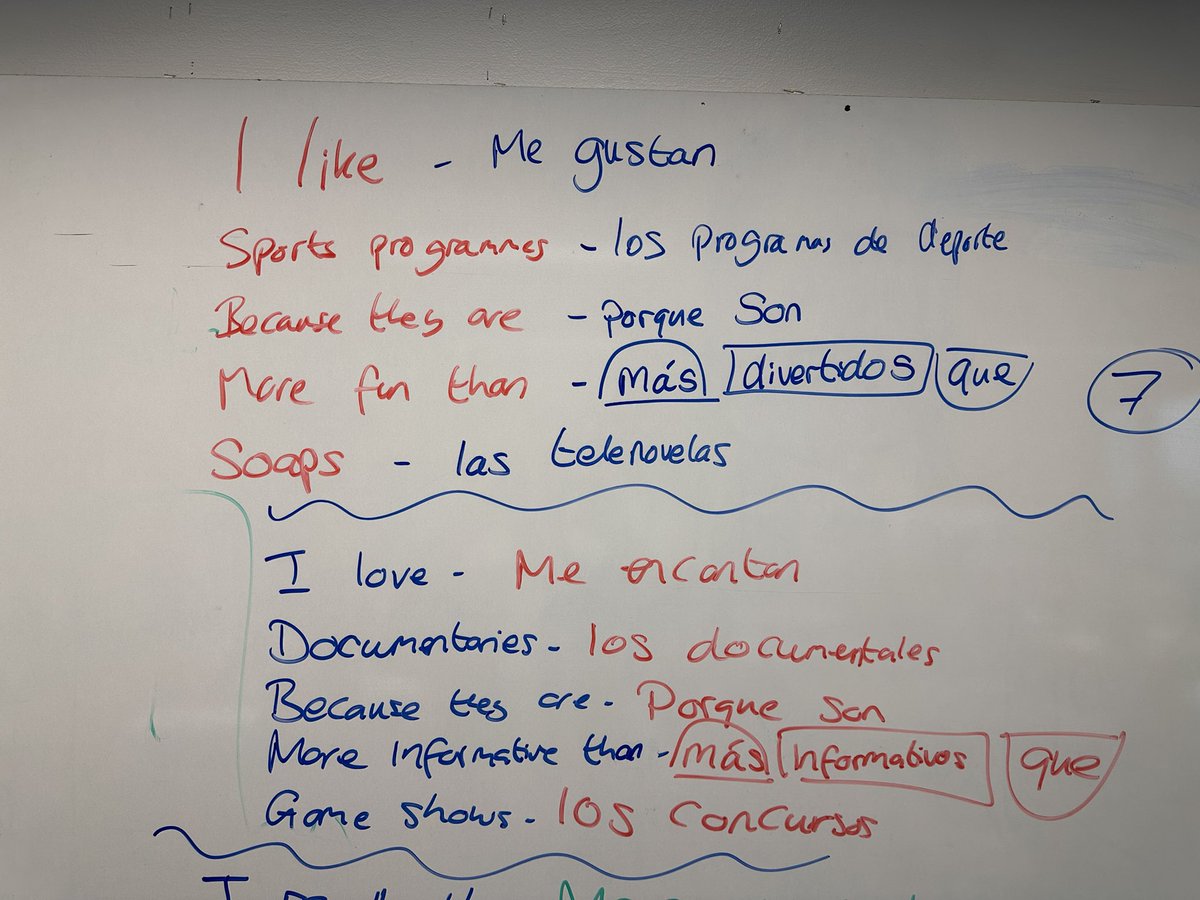 I like - Me gustan
Sports programmes - los programas de deporte
Because they are - porque son
More fun than - más divertidos que
7
Soaps - las telenovelas
I love - Me encantan
Documentaries - los documentales
Because they are - Porque son
More informative than - más informativos que
Game shows - los concursos
I